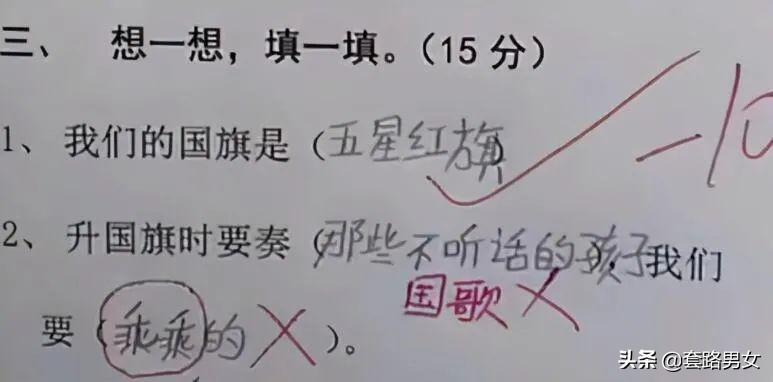 三、 想一想，填一填。（15分）
-10
1、我们的国旗是（五星红旗）
2、升国旗时要奏（那些不听话的孩子，我们
国歌
要（乖乖的）。
头条 @套路男女